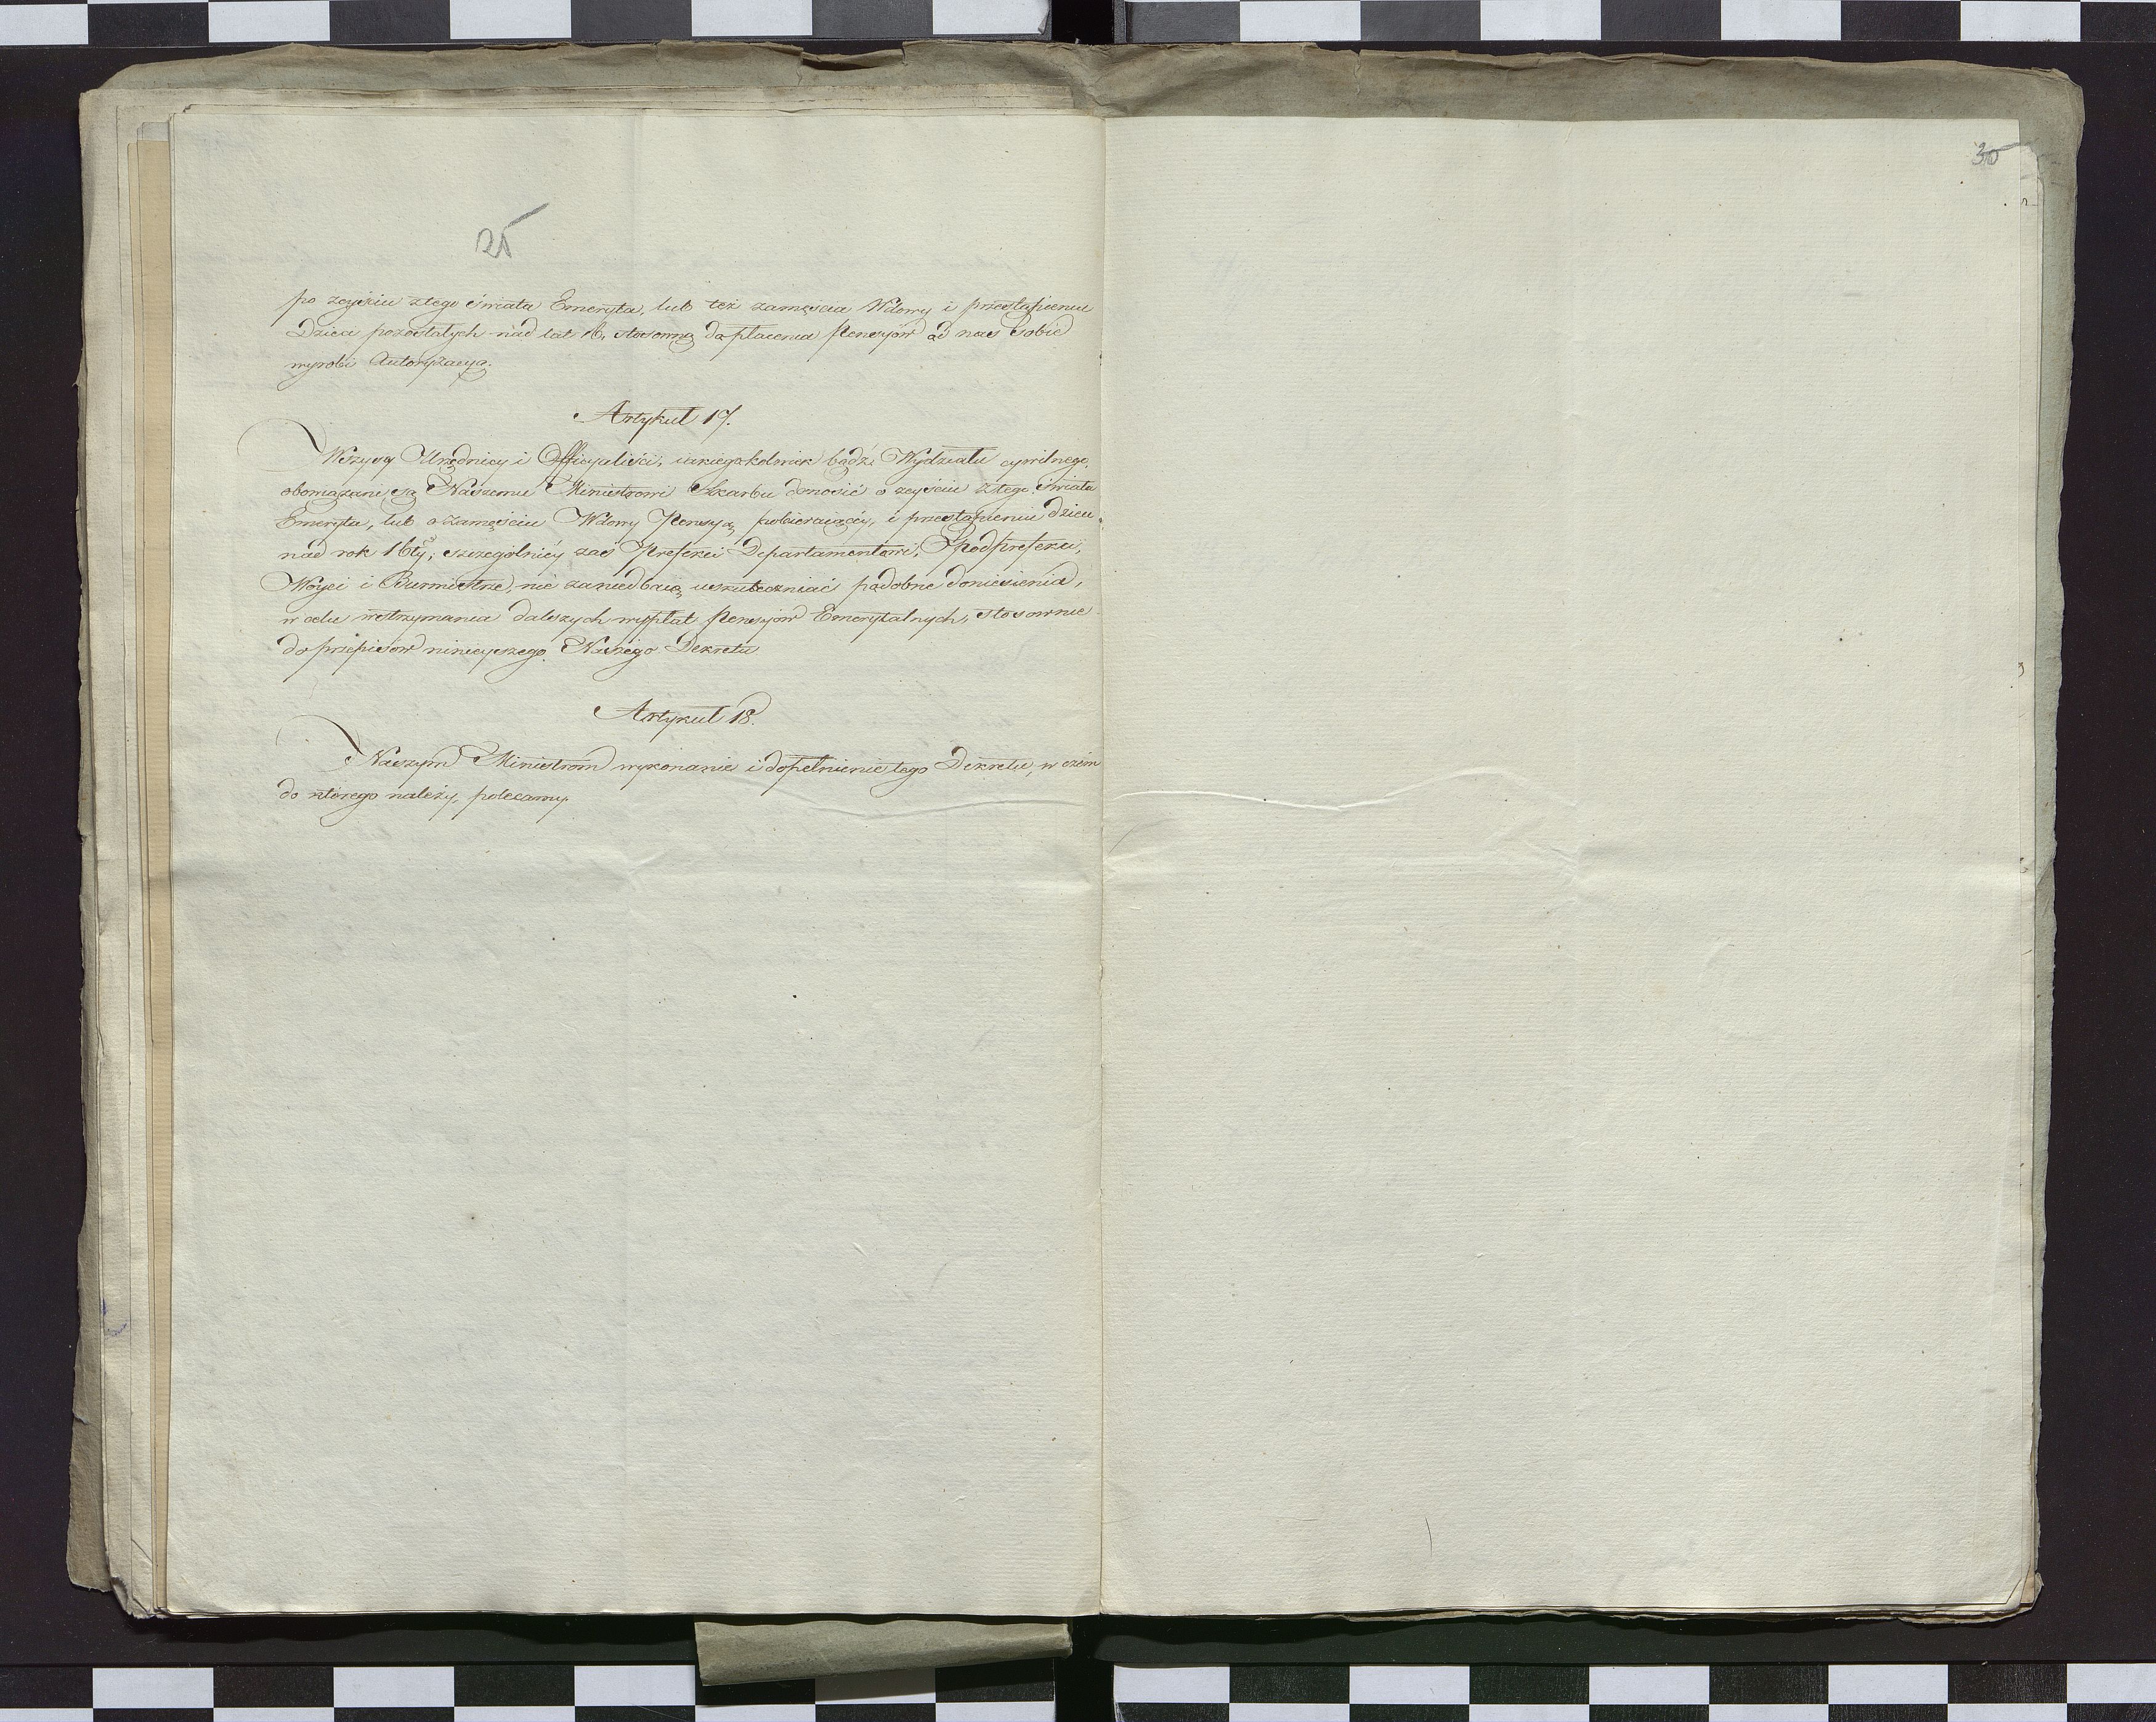 25
po zeyściu z tego świata Emeryta, lub też zamęścia Wdowy i przestąpieniu
Dzieci pozostałych nad lat 16, stosowną do płacenia Pensyów od nas sobie
wyrobi Autoryzacyą.
Artykuł 17.
Wszyscy Urzędnicy i Officyaliści, iakiegokolwiek bądź Wydziału cywilnego,
obowiązani są Naszemu Ministrowi Skarbu donosić o zeyściu z tego świata
Emeryta, lub o zamęściu Wdowy Pensyą pobieraiącéy, i przestąpieniu dzieci
nad rok 16ty, szczególniéy zaś Prefekci Departamentowi, Podprefekci,
Woyci i Burmistrze, nie zaniedbaią uskuteczniać podobne doniesienia,
w celu wstrzymania dalszych wypłat Pensyów Emerytalnych, stosownie
do przepisów ninieyszego Naszego Dekretu
Artykuł 18.
Naszym Ministrom wykonanie i dopełnienie tego Dekretu, w czém
do którego należy, polecamy.
30